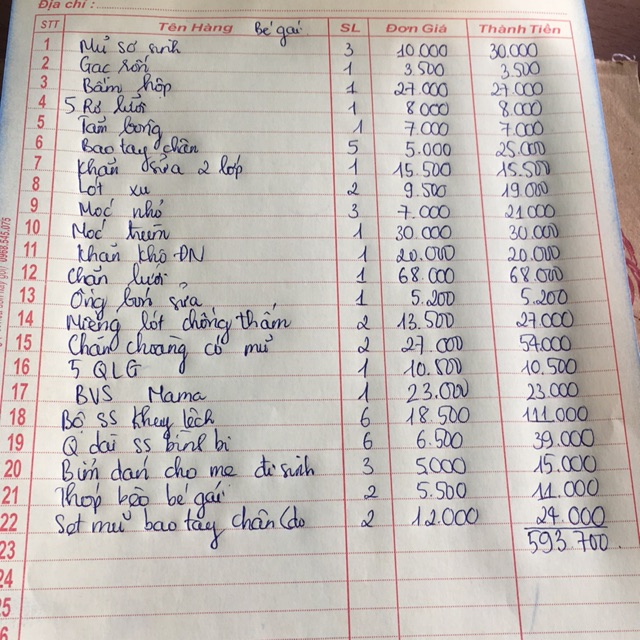 Địa chỉ :
STT Tên Hàng Bé gái SL Đơn Giá Thành Tiền
1 Mủ sơ sinh 3 10.000 30.000
2 Gạc rốn 1 3.500 3.500
3 Bấm hộp 1 27.000 27.000
4 5 Rơ lưỡi 1 8.000 8.000
5 Tăm bong 1 7.000 7.000
6 Bao tay chân 5 5.000 25.000
7 Khăn sữa 2 lớp 1 15.500 15.500
8 Lót xu 2 9.500 19.000
9 Moc nhỏ 3 7.000 21.000
10 Moc 1 30.000 30.000
11 Khăn khô ĐN 1 20.000 20.000
12 Chăn lưới 1 68.000 68.000
13 Ống sữa 1 5.200 5.200
14 Miếng lót chống thấm 2 13.500 27.000
15 Chăn choàng có mủ 2 27.000 54.000
16 5 QLG 1 10.500 10.500
17 BVS Mama 1 23.000 23.000
18 Bộ SS khuy lệch 6 18.500 111.000
19 Q dài ss bi 6 6.500 39.000
20 Bỉm dán cho mẹ đi sinh 3 5.000 15.000
21 Thóp kẹo bé gái 2 5.500 11.000
22 Set mủ bao tay chân (đo 2 12.000 24.000
23 593.700
24
25
0968.545.075